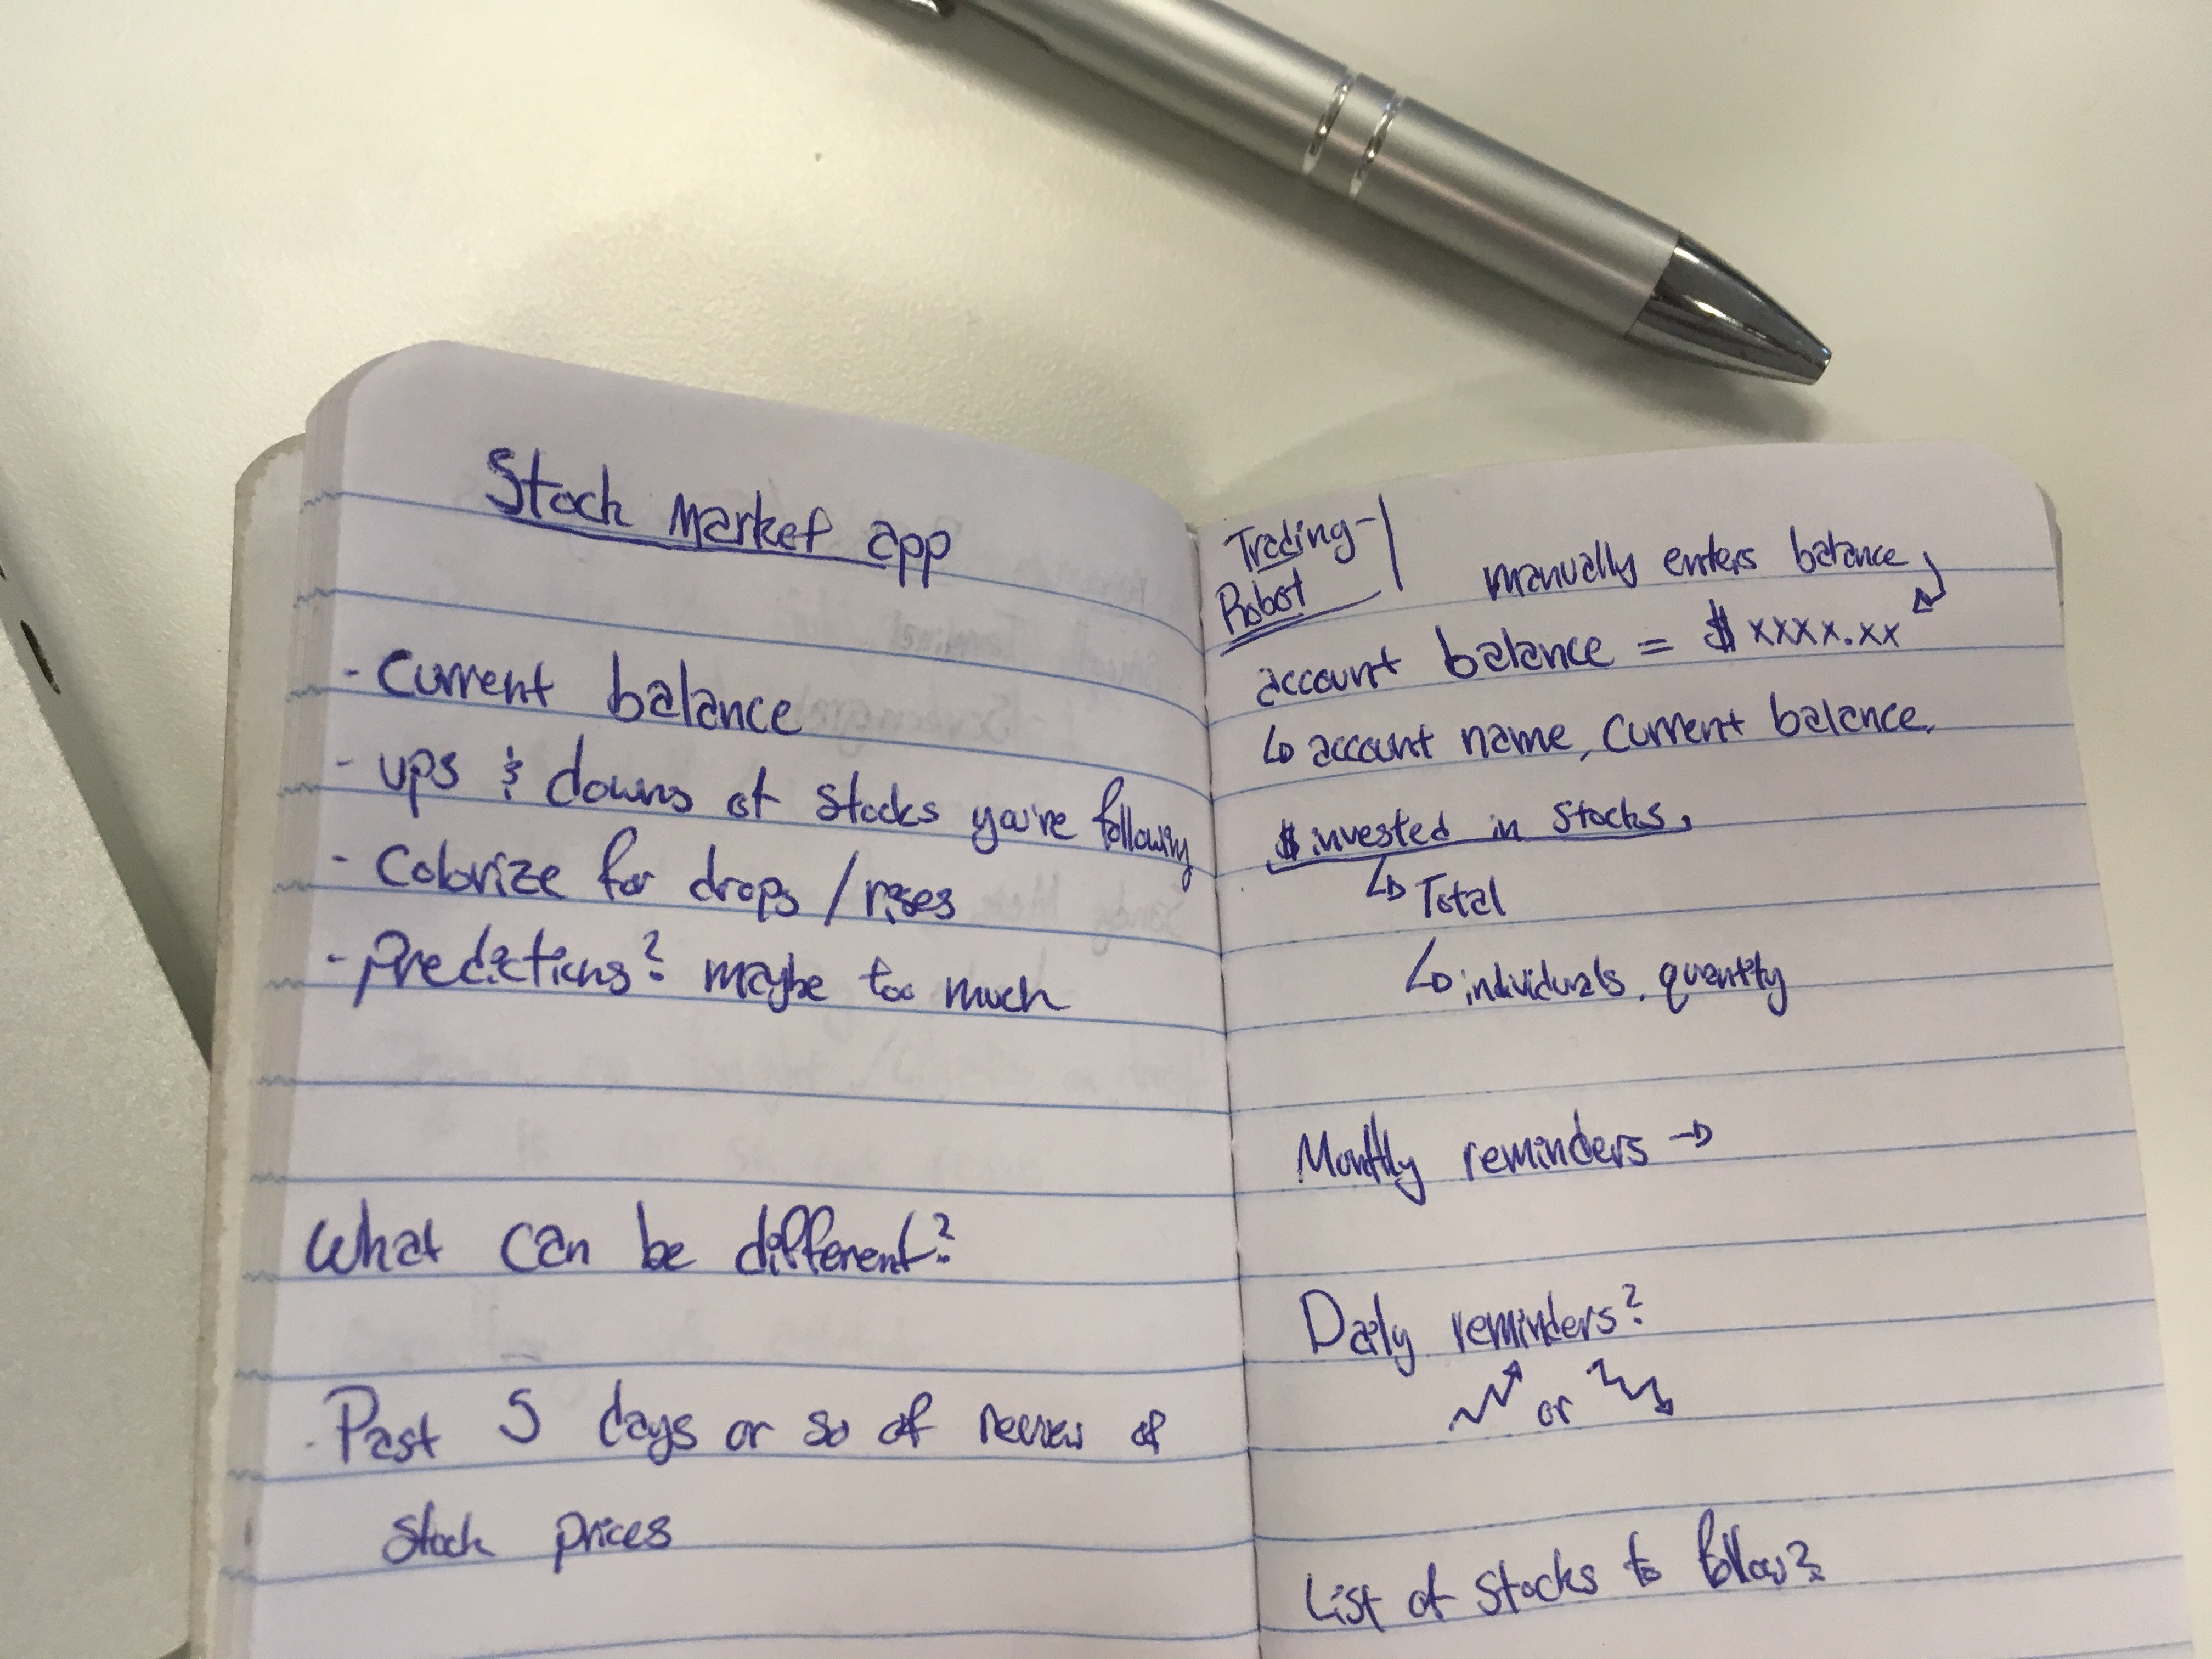 Stock market app
- Current balance
- ups & downs of stocks you're following
- Colorize for drops / rises
- Predictions? maybe too much
What can be different?
- Past 5 days or so of review of
stock prices
Trading-
Robot
manually enters balance
account balance = $ xxxx.xx
↳ account name, current balance,
$ invested in stocks,
↳ Total
↳ individuals, quantity
Monthly reminders →
Daily reminders?
or
List of stocks to follow?